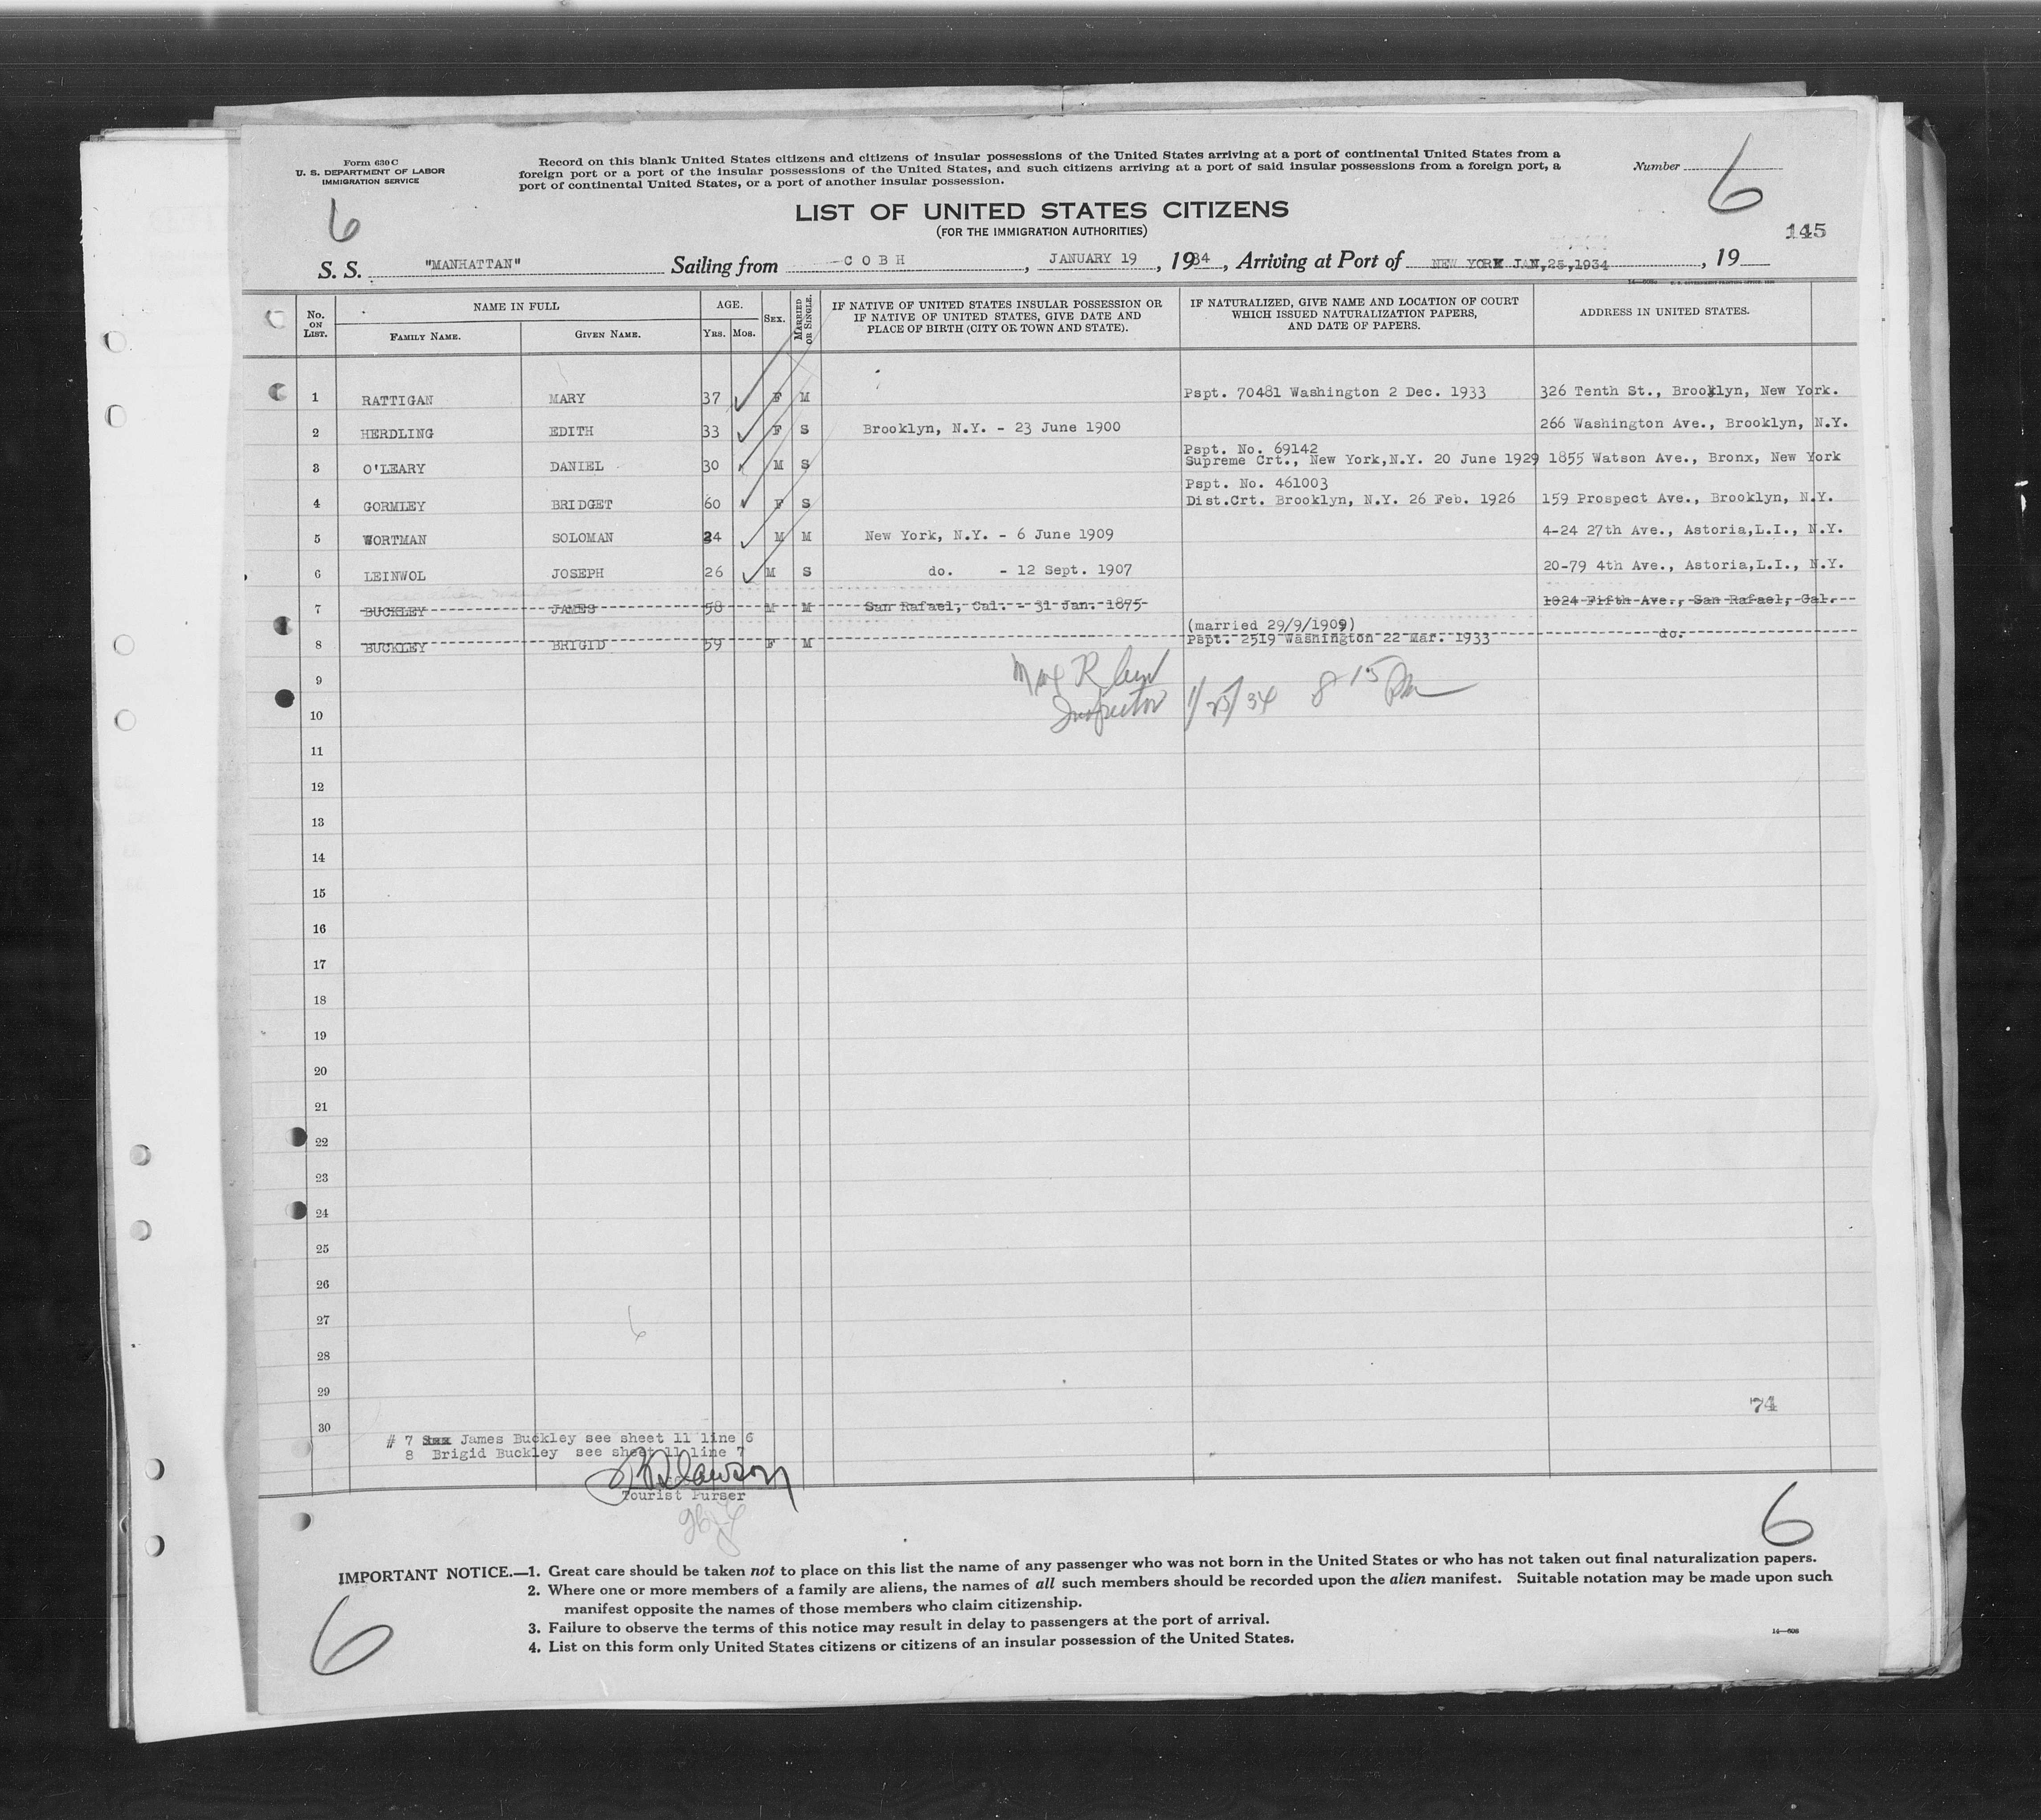 Form 630 C
U. S. DEPARTMENT OF LABOR
IMMIGRATION SERVICE
Record on this blank United States citizens and citizens of insular possessions of the United States arriving at a port of continental United States from a
foreign port or a port of the insular possessions of the United States, and such citizens arriving at a port of said insular possessions from a foreign port, a
port of continental United States, or a port of another insular possession.
Number 6
6
145
LIST OF UNITED STATES CITIZENS
(FOR THE IMMIGRATION AUTHORITIES)
S. S. "MANHATTAN" Sailing from COBH, JANUARY 19, 1934, Arriving at Port of NEW YORK JAN,25,1934, 19
No. ON LIST. NAME IN FULL AGE. SEX. MARRIED OR SINGLE. IF NATIVE OF UNITED STATES INSULAR POSSESSION OR IF NATIVE OF UNITED STATES, GIVE DATE AND PLACE OF BIRTH (CITY OR TOWN AND STATE). IF NATURALIZED, GIVE NAME AND LOCATION OF COURT WHICH ISSUED NATURALIZATION PAPERS, AND DATE OF PAPERS. ADDRESS IN UNITED STATES.
FAMILY NAME. GIVEN NAME. YRS. MOS.
1 RATTIGAN MARY 37 F M Pspt. 70481 Washington 2 Dec. 1933 326 Tenth St., Brooklyn, New York.
2 HERDLING EDITH 33 F S Brooklyn, N.Y. - 23 June 1900 266 Washington Ave., Brooklyn, N.Y.
Pspt. No. 69142
3 O'LEARY DANIEL 30 M S Supreme Crt., New York,N.Y. 20 June 1929 1855 Watson Ave., Bronx, New York
Pspt. No. 461003
4 GORMLEY BRIDGET 60 F S Dist.Crt. Brooklyn, N.Y. 26 Feb. 1926 159 Prospect Ave., Brooklyn, N.Y.
5 WORTMAN SOLOMAN 24 M M New York, N.Y. - 6 June 1909 4-24 27th Ave., Astoria,L.I., N.Y.
6 LEINWOL JOSEPH 26 M S do. - 12 Sept. 1907 20-79 4th Ave., Astoria,L.I., N.Y.
7 BUCKLEY JAMES 58 M M San Rafael, Cal. - 31 Jan. 1875 1824 Fifth Ave., San Rafael, Cal.
(married 29/9/1909)
8 BUCKLEY BRIGID 59 F M Pspt. 2519 Washington 22 Mar. 1933 do.
9 Max R
10 Inspector 1/25/34 8 15 Pm
11
12
13
14
15
16
17
18
19
20
21
22
23
24
25
26
27
6
28
29
74
30
# 7 James Buckley see sheet 11 line 6
8 Brigid Buckley see sheet 11 line 7
Tourist Purser
6
IMPORTANT NOTICE.—1. Great care should be taken not to place on this list the name of any passenger who was not born in the United States or who has not taken out final naturalization papers.
2. Where one or more members of a family are aliens, the names of all such members should be recorded upon the alien manifest. Suitable notation may be made upon such
manifest opposite the names of those members who claim citizenship.
3. Failure to observe the terms of this notice may result in delay to passengers at the port of arrival.
4. List on this form only United States citizens or citizens of an insular possession of the United States.
6
14—608